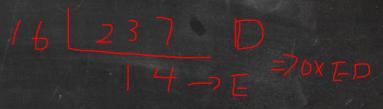 16 | 237 D
14 → E ⇒ 0x ED